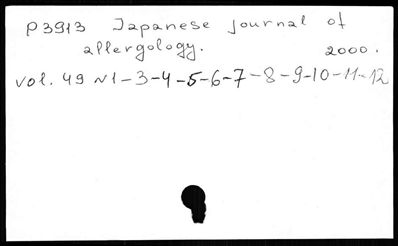 P3913 Japanese journal of
allergology. 2000.
vol. 49 N1-3-4-5-6-7-8-9-10-11-12